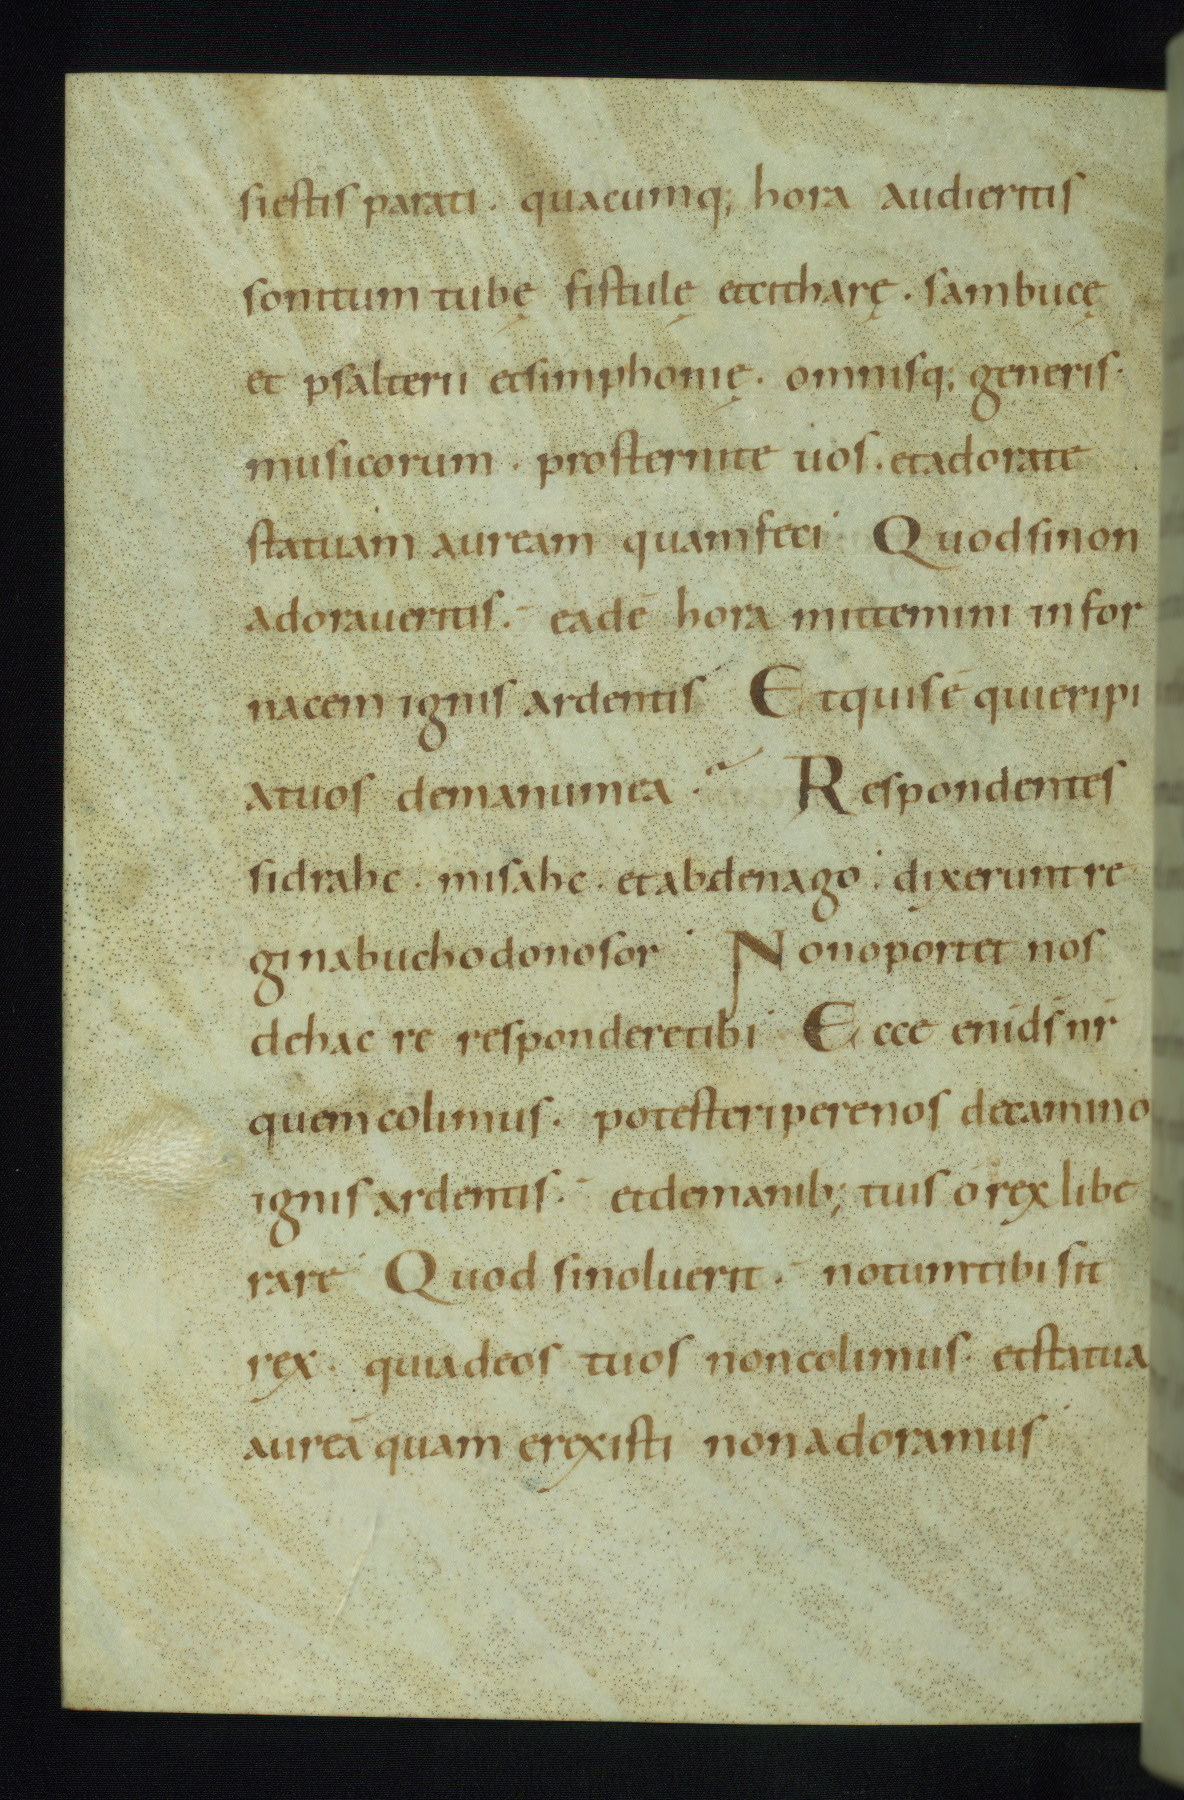 siestis parati. quacumq; hora audieritis
sonitum tubę fistulę et citharę. sambucę
et psalterii et simphonię. omnisq; generis
musicorum. prosternite uos. et adorate
statuam auream quam feci. Quod si non
adoraueritis. eadē hora mittemini in for
nacem ignis ardentis. Et quis ē qui eripi
at uos de manu mea? Respondentes
sidrahc. misahc. et abdenago. dixerunt re
gi nabuchodonosor. Non oportet nos
de hac re respondere tibi. Ecce eni ds̄ nr̄
quem colimus. potest eripere nos de camino
ignis ardentis. et de manib; tuis o rex libe
rare. Quod si noluerit. notum tibi sit
rex. quia deos tuos non colimus. et statua
aureā quam erexisti non adoramus.